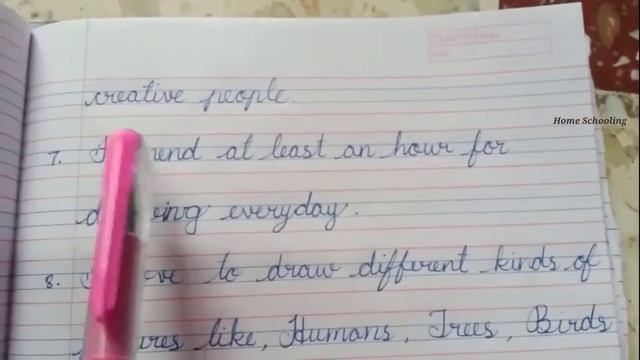 creative people.
Home Schooling
7. at least an hour for
everyday.
8. to draw different kinds of
like, Humans, Trees, Birds